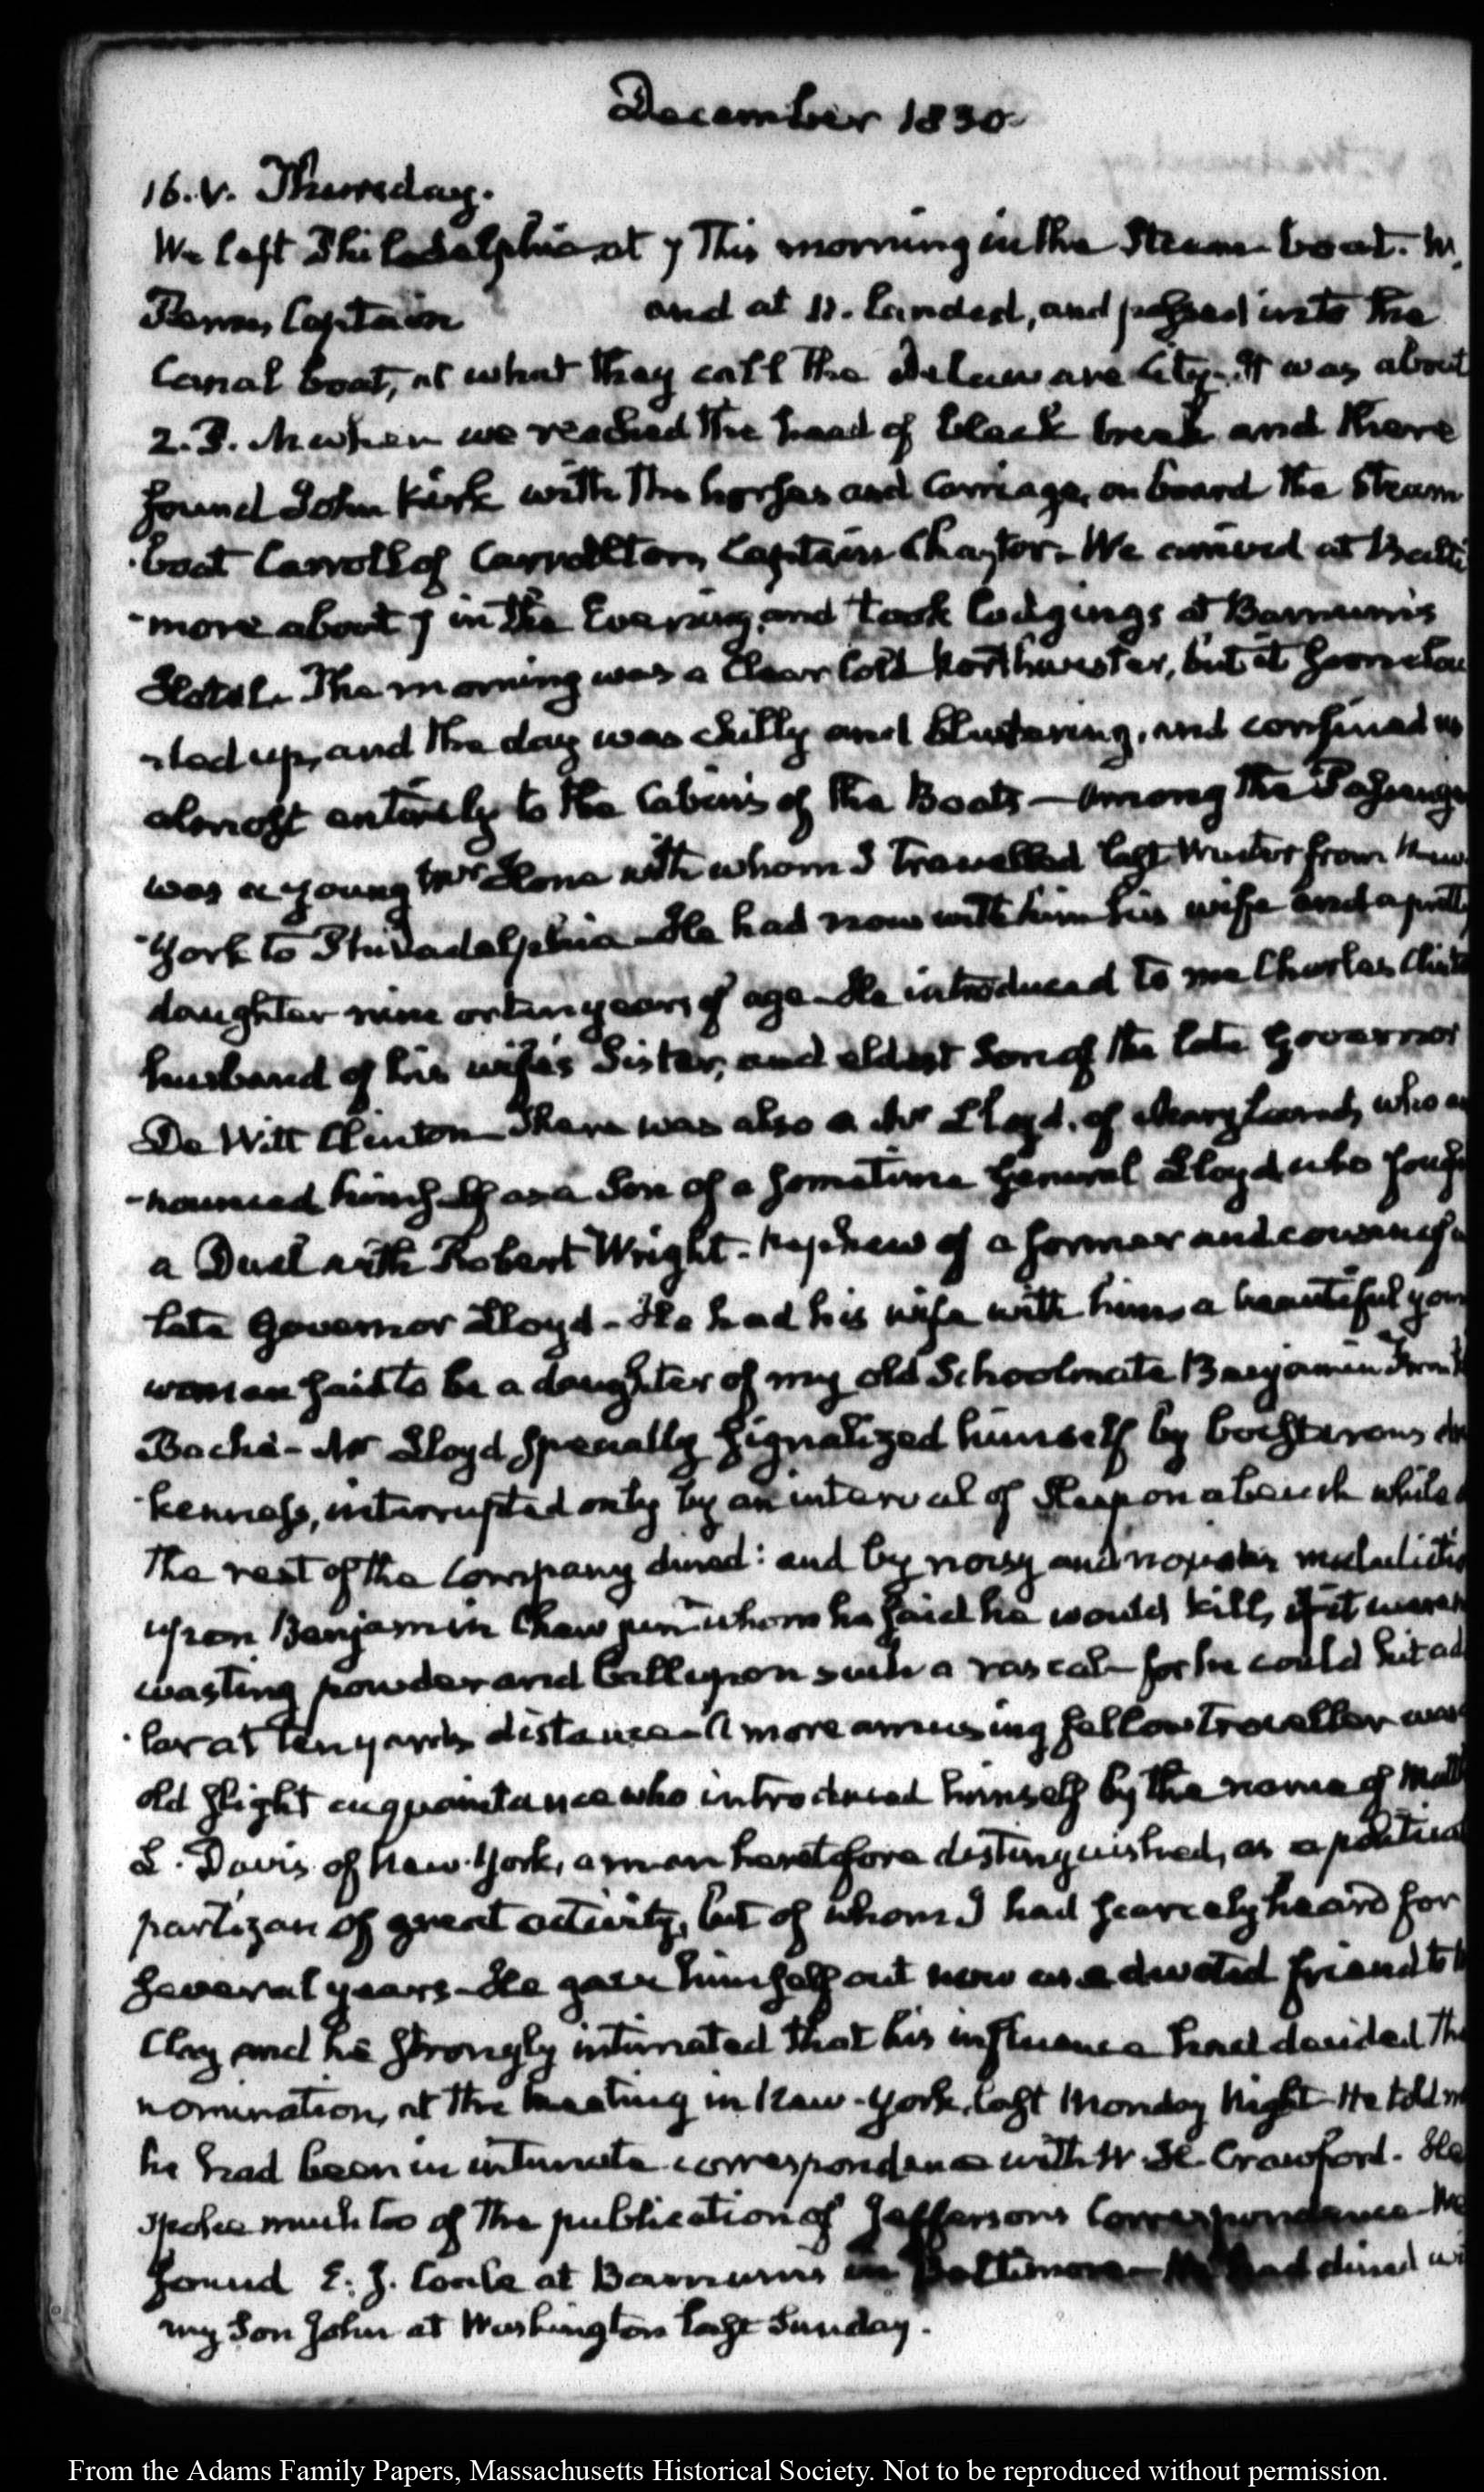 December 1830
16. V. Thursday.
We left Philadelphia at 7 this morning in the Steam-boat. W.
Penn, Captain and at 11. landed, and passed into the
Canal boat, at what they call the Delaware City. It was about
2. P. M when we reached the head of black creek and there
found John Kirk with the horses and Carriage, on board the Steam
boat Carroll of Carrollton, Captain Chaytor. We arrived at Balti
-more about 7 in the Evening, and took lodgings at Barnum's
Hotel. The morning was a clear cold Northwester, but it soon clou
-ded up, and the day was chilly and blustering, and confined us
almost entirely to the Cabins of the Boats — Among the Passenge
was a young Mr Hone with whom I travelled last Winter from New
York to Philadelphia. He had now with him his wife and a pretty
daughter nine or ten years of age. He introduced to me Charles Clint
husband of his wife's Sister, and eldest Son of the late Governor
De Witt Clinton. There was also a Mr Lloyd, of Maryland, who an
-nounced himself as a Son of a sometime General Lloyd who fough
a Duel with Robert Wright. Nephew of a former and cousin of a
late Governor Lloyd - He had his wife with him, a beautiful youn
woman said to be a daughter of my old Schoolmate Benjamin Frank
Bache - Mr Lloyd specially signalized himself by boisterous drun
-kenness, interrupted only by an interval of Sleep on a bench while
the rest of the Company dined: and by noisy and maledictio
upon Benjamin Chew junr whom he said he would kill, if it were n
wasting powder and ball upon such a rascal - for he could hit a d
lar at ten yards distance - A more amusing fellow traveller was
old slight acquaintance who introduced himself by the name of Matt
L. Davis of New-York, a man heretofore distinguished, as a political
partizan of great activity, but of whom I had scarcely heard for
several years - He gave himself out now as a devoted friend to
Clay and he strongly intimated that his influence had decided the
nomination, at the meeting in New-York, last Monday Night - He told m
he had been in intimate correspondence with W. H. Crawford. He
spoke much too of the publication of Jefferson's Correspondence - We
found E. J. Coale at Barnum's in Baltimore - He had dined wi
my Son John at Washington last Sunday.
From the Adams Family Papers, Massachusetts Historical Society. Not to be reproduced without permission.